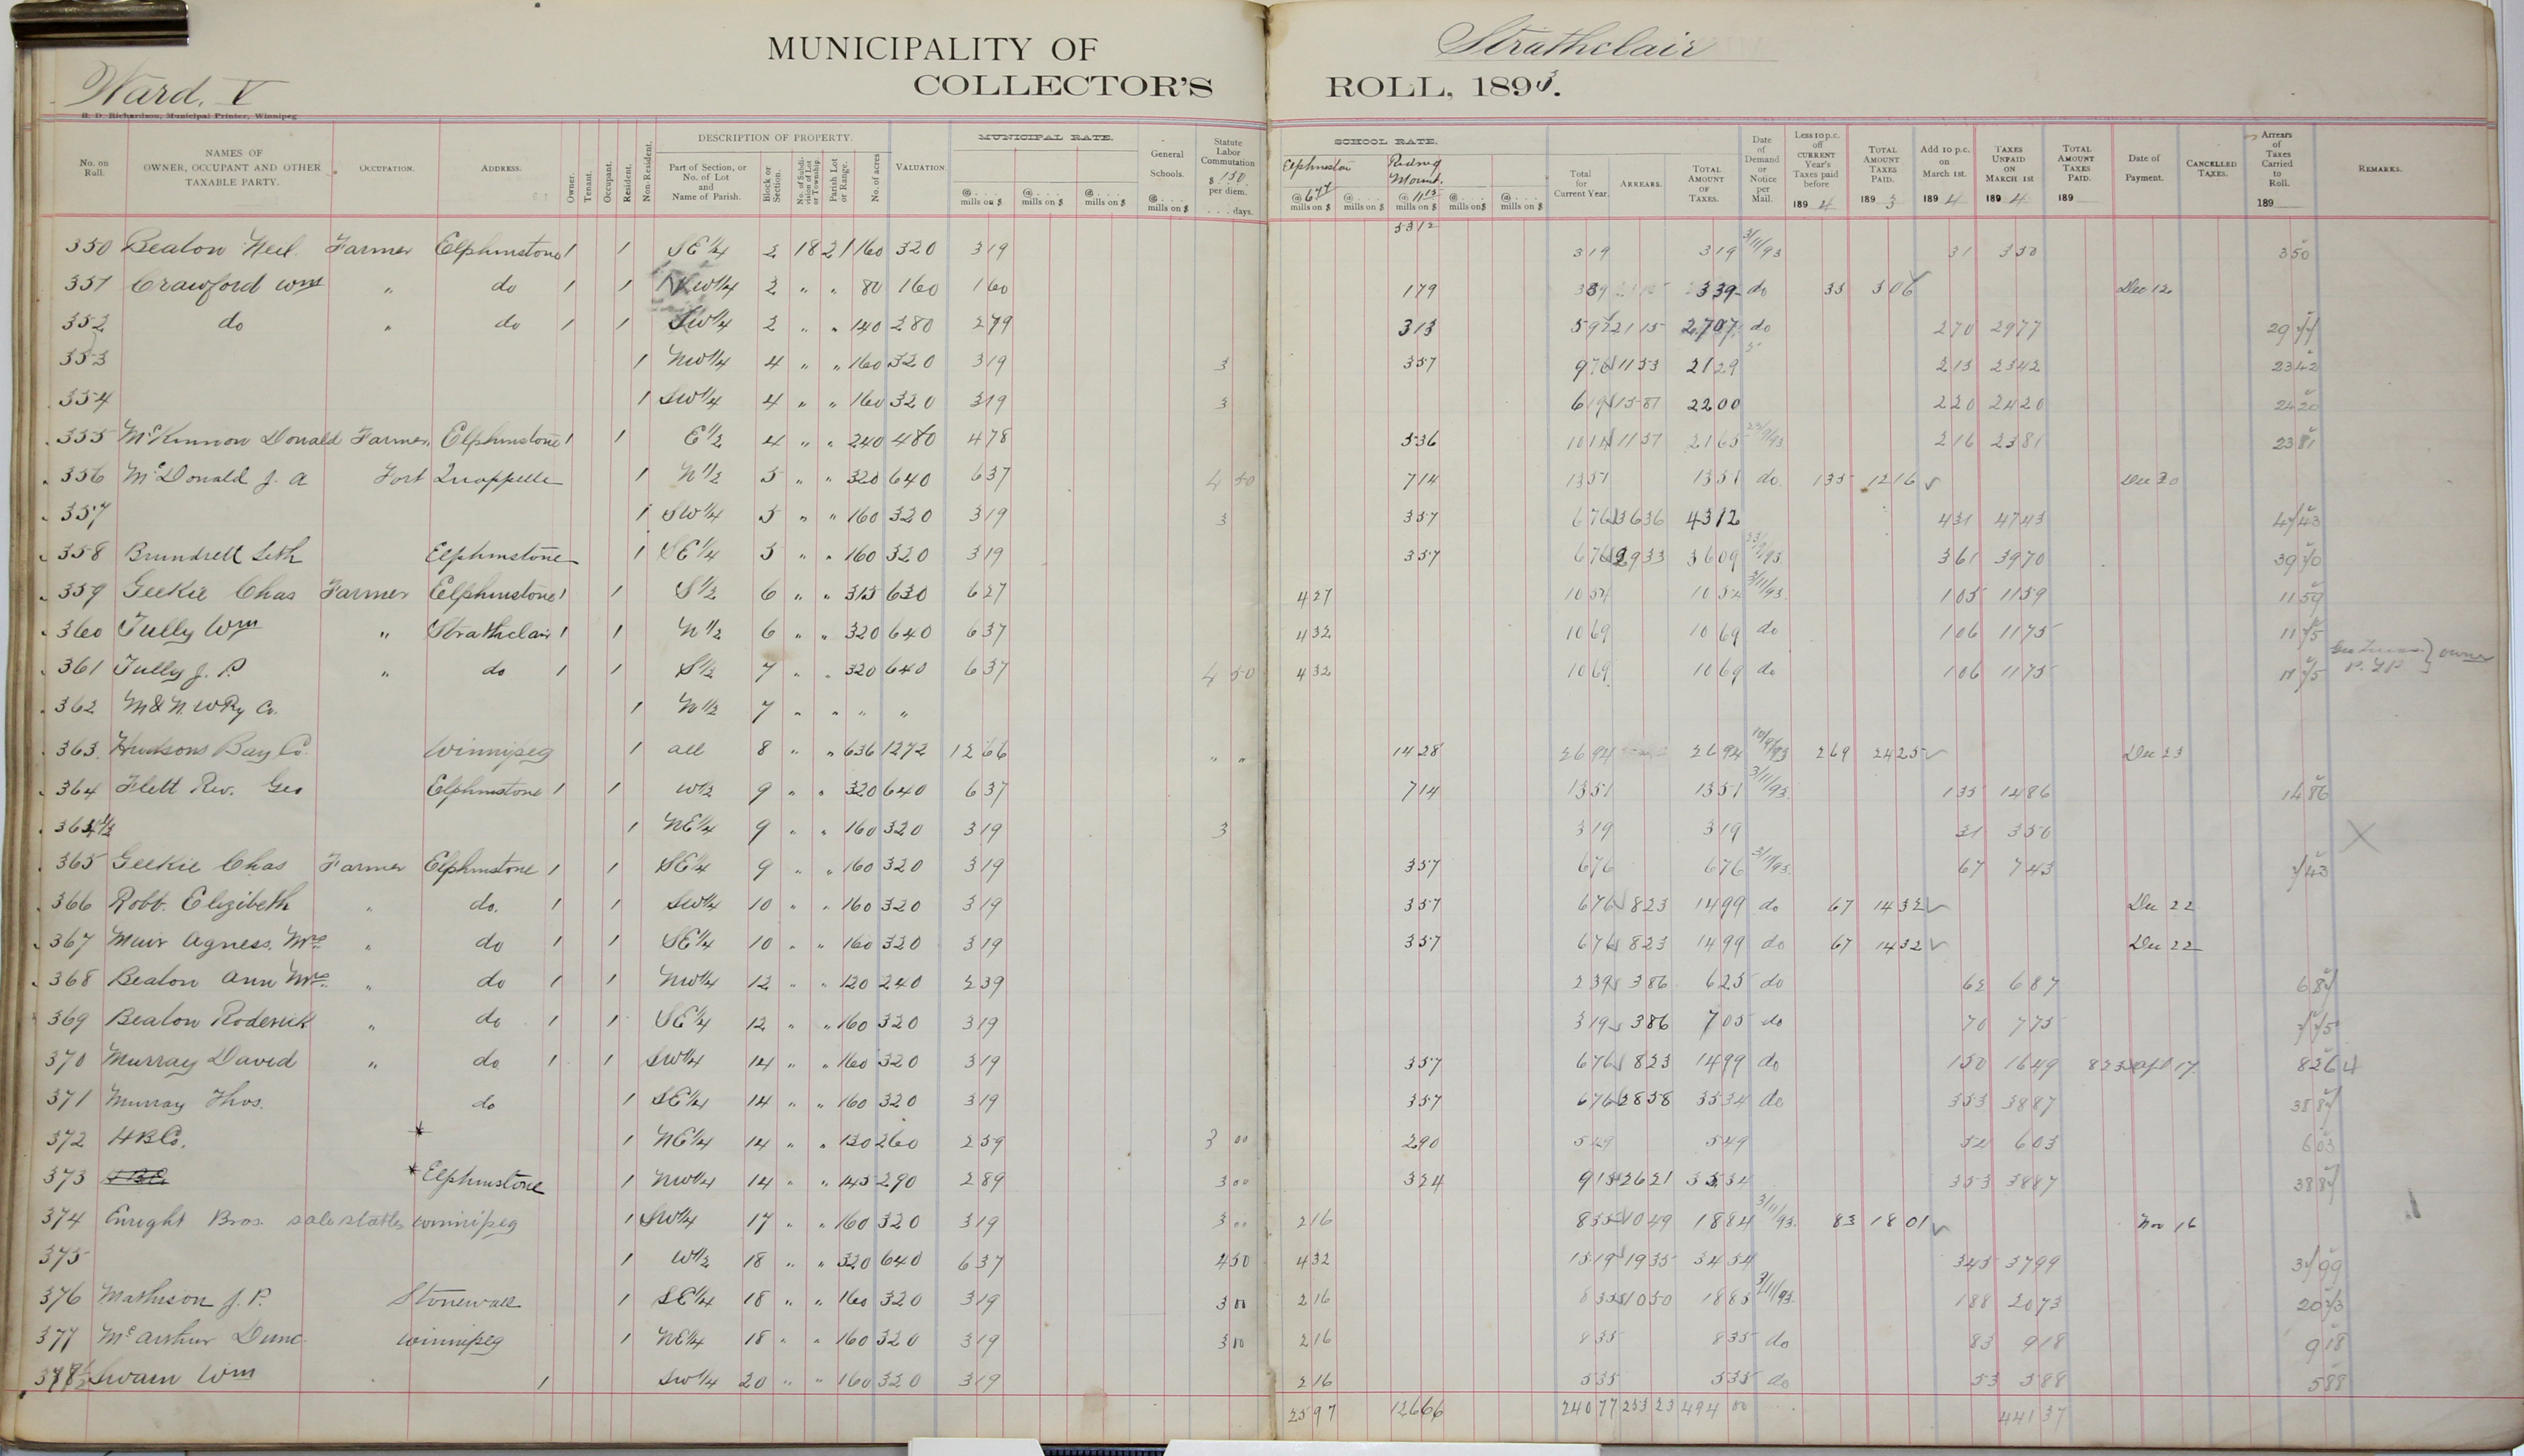 MUNICIPALITY OF Strathclair
Ward, V COLLECTOR'S ROLL, 1893.
R. D. Richardson, Municipal Printer, Winnipeg
No. on Roll. NAMES OF OWNER, OCCUPANT AND OTHER TAXABLE PARTY. OCCUPATION. ADDRESS. Owner. Tenant. Occupant. Resident. Non-Resident. DESCRIPTION OF PROPERTY. Part of Section, or No. of Lot and Name of Parish. Block or Section. No. of Subdivision of Lot or Township. Parish Lot or Range. No. of acres VALUATION MUNICIPAL RATE. @ . . . mills on $ @ . . . mills on $ @ . . . mills on $ General Schools. @ . . . mills on $ Statute Labor Commutation $ 1.50 per diem. . . . days. SCHOOL RATE. Elphinston @ 6 74 mills on $ @ . . . mills on $ Riding Mount. @ 11 15 mills on $ @ . . . mills on $ @ . . . mills on $ Total for Current Year. ARREARS. TOTAL AMOUNT OF TAXES. Date of Demand or Notice per Mail. Less 10 p.c. off CURRENT Year's Taxes paid before 189 4 TOTAL AMOUNT TAXES PAID. 189 3 Add 10 p.c. on March 1st. 189 4 TAXES UNPAID ON MARCH 1ST 189 4 TOTAL AMOUNT TAXES PAID. 189 Date of Payment. CANCELLED TAXES. Arrears of Taxes Carried to Roll. 189 REMARKS.
350 Beaton Neil Farmer Elphinstone 1 1 SE 1/4 2 18 21 160 320 3 19 3 19 3 19 3/11/93 31 3 50 3 50
351 Crawford Wm " do 1 1 NW 1/4 2 " " 80 160 1 60 1 79 3 39 3 39 do 33 3 06 Dec 12
352 do " do 1 1 SW 1/4 2 " " 140 280 2 79 3 13 5 92 21 15 27 07 do 2 70 29 77 29 77
353 1 NW 1/4 4 " " 160 320 3 19 3 3 57 9 76 11 53 21 29 2 13 23 42 23 42
354 1 SW 1/4 4 " " 160 320 3 19 3 6 19 15 81 22 00 2 20 24 20 24 20
355 McKinnon Donald Farmer Elphinstone 1 1 E 1/2 4 " " 240 480 4 78 5 36 10 14 11 51 21 65 2 16 23 81 23 81
356 McDonald J. A Fort Quappelle 1 N 1/2 5 " " 320 640 6 37 4 50 7 14 13 51 13 51 do 1 35 12 16 Dec 20
357 1 SW 1/4 5 " " 160 320 3 19 3 3 57 6 76 36 36 43 12 4 31 47 43 47 43
358 Brundrett Seth Elphinstone 1 SE 1/4 5 " " 160 320 3 19 3 57 6 76 29 33 36 09 3 61 39 70 39 70
359 Geekie Chas Farmer Elphinstone 1 1 S 1/2 6 " " 315 630 6 27 4 27 10 54 10 54 3/11/93 1 05 11 59 11 59
360 Tully Wm " Strathclair 1 1 N 1/2 6 " " 320 640 6 37 4 32 10 69 10 69 do 1 06 11 75 11 75
361 Tully J. P. " do 1 1 S 1/2 7 " " 320 640 6 37 4 50 4 32 10 69 10 69 do 1 06 11 75 11 75 owner
362 M & N. W Ry Co. 1 N 1/2 7 " " " "
363 Hudsons Bay Co. Winnipeg 1 all 8 " " 636 1272 12 66 " " 14 28 26 94 26 94 10/9/93 2 69 24 25 Dec 23
364 Flett Rev. Geo Elphinstone 1 1 W 1/2 9 " " 320 640 6 37 7 14 13 51 13 51 3/11/93 1 35 14 86 14 86
364 1/2 1 NE 1/4 9 " " 160 320 3 19 3 3 19 3 19 31 3 50 X
365 Geekie Chas Farmer Elphinstone 1 1 SE 1/4 9 " " 160 320 3 19 3 57 6 76 6 76 3/11/93 67 7 43 7 43
366 Robt. Elizibeth " do. 1 1 SW 1/4 10 " " 160 320 3 19 3 57 6 76 8 23 14 99 do 67 14 32 Dec 22
367 Muir Agness. Mrs " do 1 1 SE 1/4 10 " " 160 320 3 19 3 57 6 76 8 23 14 99 do 67 14 32 Dec 22
368 Beaton Ann Mrs. " do 1 1 NW 1/4 12 " " 120 240 2 39 2 39 3 86 6 25 do 62 6 87 6 87
369 Beaton Roderick " do 1 1 SE 1/4 12 " " 160 320 3 19 3 19 3 86 7 05 do 70 7 75 7 75
370 Murray David " do 1 1 SW 1/4 14 " " 160 320 3 19 3 57 6 76 8 23 14 99 do 1 50 16 49 8 23 Apl 17 8 26
371 Murray Thos. do 1 SE 1/4 14 " " 160 320 3 19 3 57 6 76 28 58 35 34 do 3 53 38 87 38 87
372 H B Co. * 1 NE 1/4 14 " " 130 260 2 59 3 00 2 90 5 49 5 49 54 6 03 6 03
373 * Elphinstone 1 NW 1/4 14 " " 145 290 2 89 3 00 3 24 9 13 26 21 35 34 3 53 38 87 38 87
374 Enright Bros. sale stables Winnipeg 1 SW 1/4 17 " " 160 320 3 19 3 00 2 16 8 35 10 49 18 84 3/11/93 83 18 01 Nov 16
375 1 W 1/2 18 " " 320 640 6 37 4 50 4 32 15 19 19 35 34 54 3 45 37 99 37 99
376 Mathison J. P. Stonewall 1 SE 1/4 18 " " 160 320 3 19 3 00 2 16 8 35 10 50 18 85 3/11/93 1 88 20 73 20 73
377 McArthur Dunc. Winnipeg 1 NE 1/4 18 " " 160 320 3 19 3 00 2 16 8 35 8 35 do 83 9 18 9 18
378 1/2 Swain Wm 1 SW 1/4 20 " " 160 320 3 19 2 16 5 35 5 35 do 53 5 88 5 88
25 97 126 66 240 77 253 23 494 00 441 37